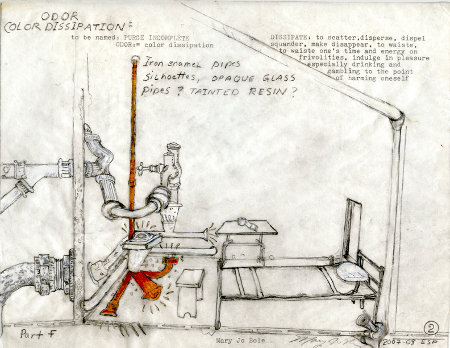 ODOR
COLOR DISSIPATION:
to be named: PURGE INCOMPLETE
ODOR:= color dissipation
Iron enamel pipes
Silhoettes, OPAQUE GLASS
pipes? TAINTED RESIN?
DISSIPATE: to scatter,disperse, dispel
squander, make disappear, to waiste,
to waiste one's time and energy on
frivolities, indulge in pleasure
especially drinking and
gambling to the point
of harming oneself
Part F
Mary Jo Bole
2
2007-08 ESP